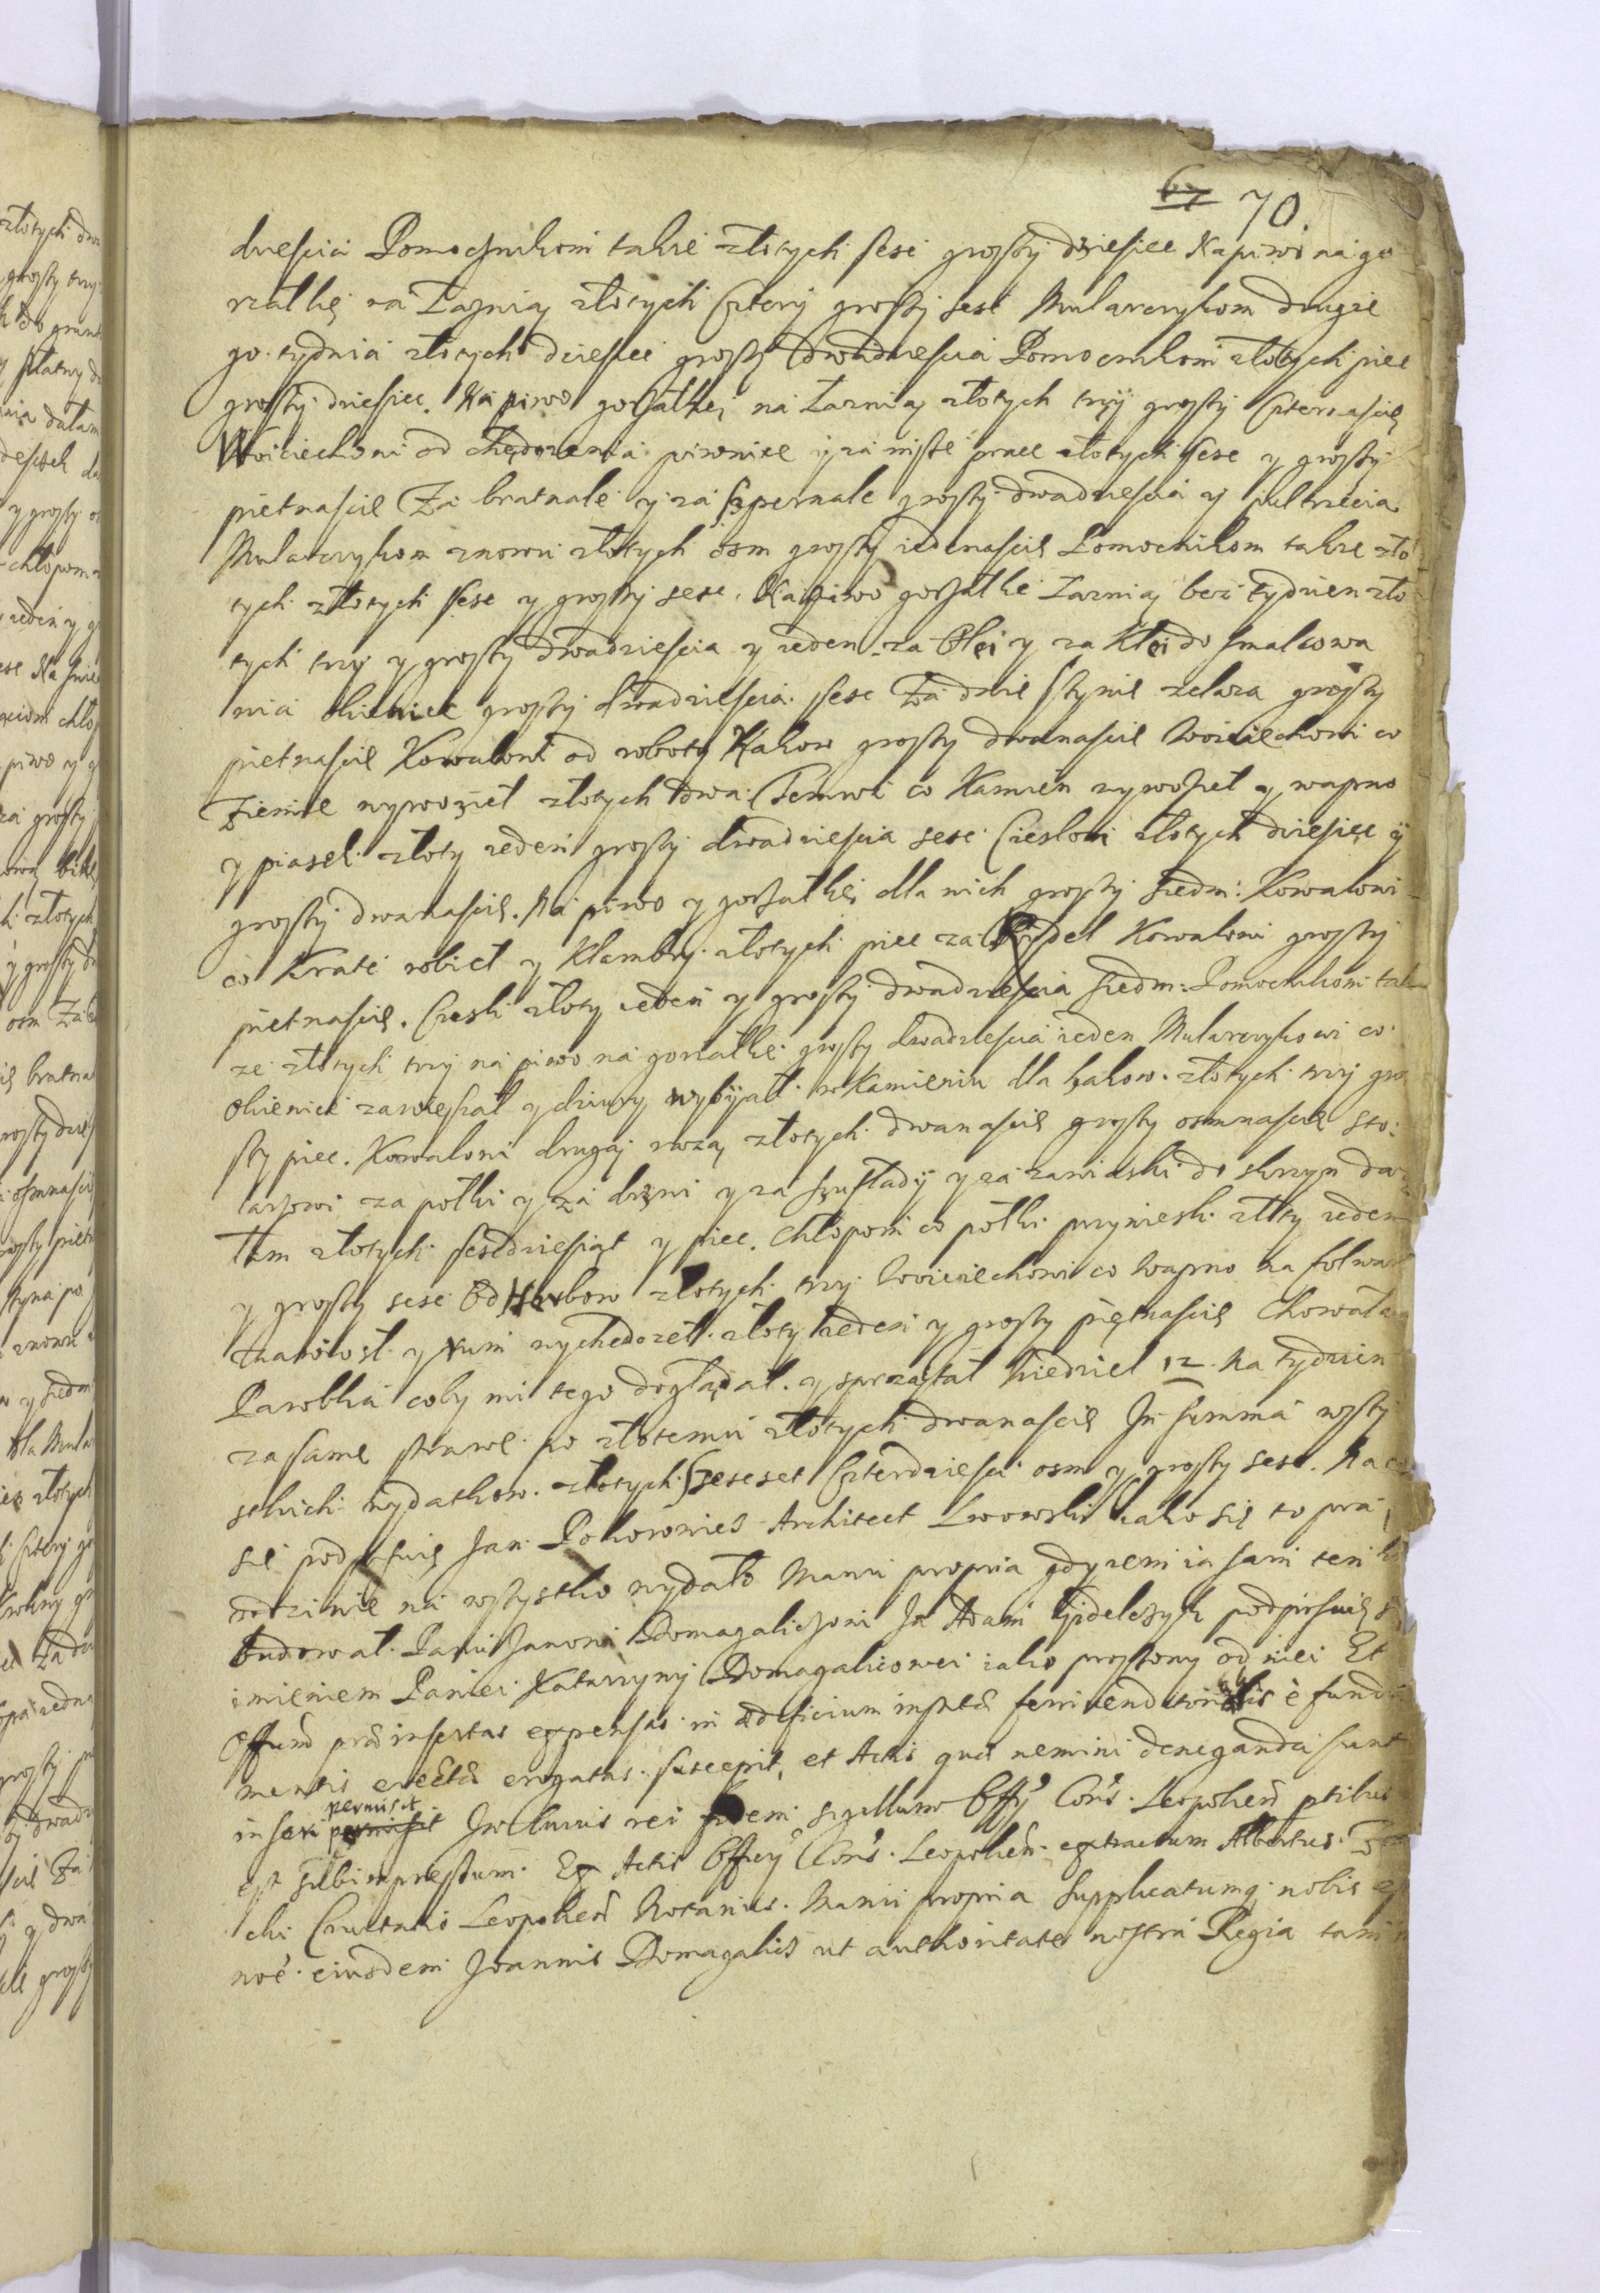 67 70.
dziescia Pomocznikom takze złotych sesc groszy dziesiec Na piwo na go
rzałkę na Łaznią złotych Cztery groszy sesc Mularczykom drugie
go tydnia złotych dziesiec groszy dwadziescia Pomocnikom złotych piec
groszy dziesiec. Na piwo gorzałkę, na Łaznią złotych trzy groszy Czternascie
Woiciechowi od chędozenia piwnice y za insze prace złotych sesc y groszy
pietnascie Za bratnale y za Szpernale groszy dwadziescia y pultrzecia
Mularczykom znowu złotych osm groszy iedenascie Pomocnikom takze zło
tych złotych sesc y groszy sesc. Na piwo gorzałke Łaznią bez tydzien zło
tych trzy y groszy dwadziescia y ieden za Olei y za Klei do smalcowa
nia okienic groszy dwadziescia sesc Za dzie sztynie zelaza groszy
pietnascie Kowalowi od roboty Hakow groszy dwanascie Woiciechowi co
Ziemie wywoził złotych dwa. Semui co Kamien zywoził y wapno
y piasek złoty ieden groszy dwadziescia sesc Ciesłowi złotych dziesięc y
groszy dwanascie. Na piwo y gorzałkę dla nich groszy siedm: Kowalowi
co Kratę robieł y Klambry złotych piec za Rydel Kowalowi groszy
pietnascie. Cieśli złoty ieden y groszy dwadziescia siedm: Pomocnikom tak
ze złotych trzy na piwo na gorzałke groszy dwadziescia ieden Mularczykowi co
okienice zawieszał y dziury wybijał w Kamieniu dla hakow złotych trzy gro
szy piec. Kowalowi drugą razą złotych dwanascie groszy osmnascie Sto:
larzowi za połki y za drzwi y za szuflady y za zawiaski do skrzyn da
łam złotych sescdziesiąt y piec. Chłopom co połki przynieśli złoty ieden
y groszy sesc Od Herbow złotych trzy Woiciechowi co wapno na folwark
znawiosł y rum wychedozeł złoty ieden y groszy piętnascie Chowałam
Parobka coby mi tego doglądał y sprzątał Niedziel 12 Na tydzien
za same strawe po złotemu złotych dwanascie In summa wszy
stkich wydatkow złotych Szescset Czterdziesci osm y groszy sesc. Na co
się podpisuię Jan Pokorowicz Architect Lwowski iako się to pra
wdziwie na wszystko wydało Manu propria gdyzem ia sam ten
budował. Panu Janowi Domagaliczowi Ja Adam Gidelczyk podpisuię
imieniem Paniei Katarzyny Domagaliczowei iako proszony od niei Et
Offum præinsertas expensas in ædificium
mentis erectæ erogatas suscepit, et Actis quæ nemini deneganda sunt
permisit
inseri permisit In cuius rei fidem sigillum Offy Cons. Leopolien ptibus
est subimpressum. Ex Actis Offcy Cons. Leopolien extractum Albertus
cki Civitatis Leopolien Notarius. Manu propria Supplicatumq nobis
noe eiusdem Joannis Domagalicz ut authoritate nostra Regia tam